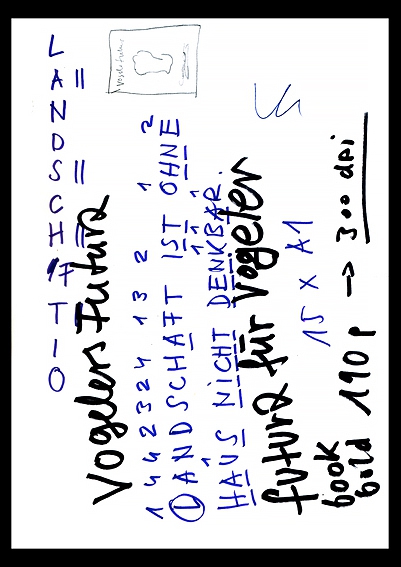 Vogelers Futura
1 4 4 2 3 2 4 1 3 2 1 2
LANDSCHAFT IST OHNE
HAUS NICHT DENKBAR.
futura für Vogeler
15 X A1
book
bild 190p → 300 dpi